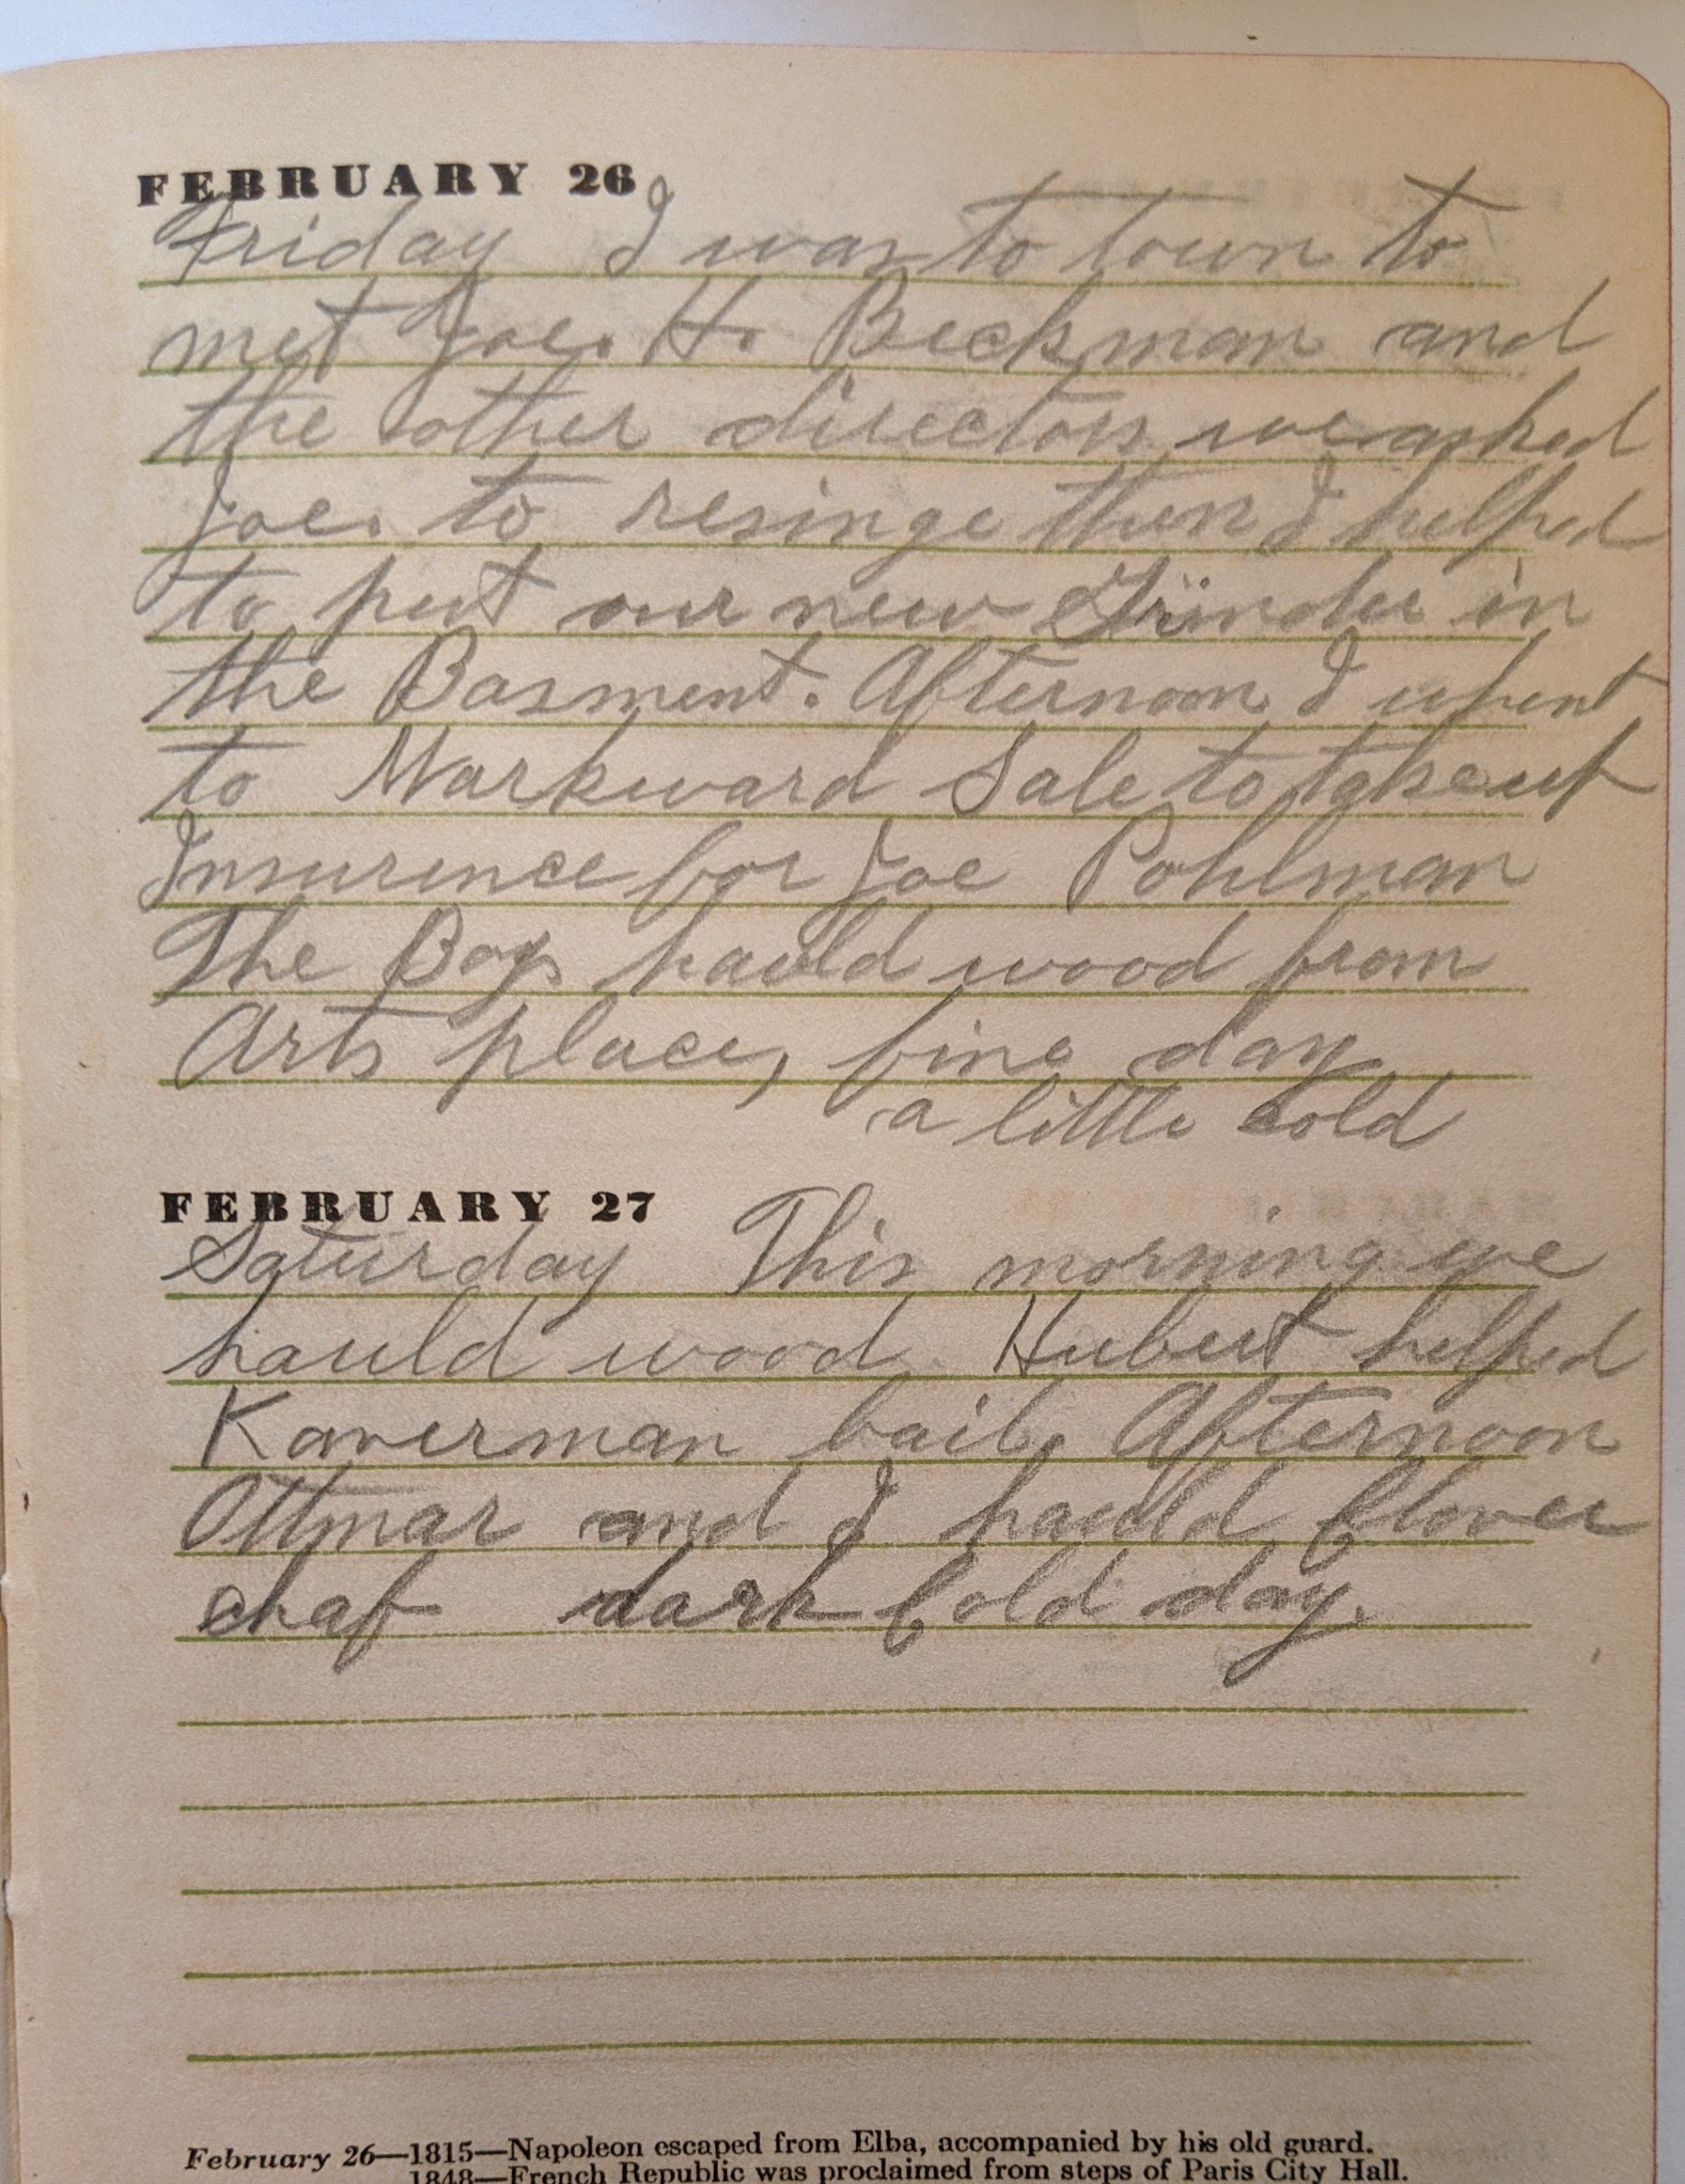 FEBRUARY 26
Friday I was to town to
met Joe. H. Beckman and
the other directors we asked
Joe. to resinge then I helped
to put our new Grinder in
the Basment. Afternoon I whent
to Markward Sale to take out
Insurence for Joe Pohlman
The Boys hauld wood from
Arts place, fine day
a little cold
FEBRUARY 27
Saturday This morning we
hauld wood. Hubert helped
Kaverman bail. Afternoon
Ottmar and I hauld Clover
chaf dark Cold day.
February 26—1815—Napoleon escaped from Elba, accompanied by his old guard.
1848—French Republic was proclaimed from steps of Paris City Hall.